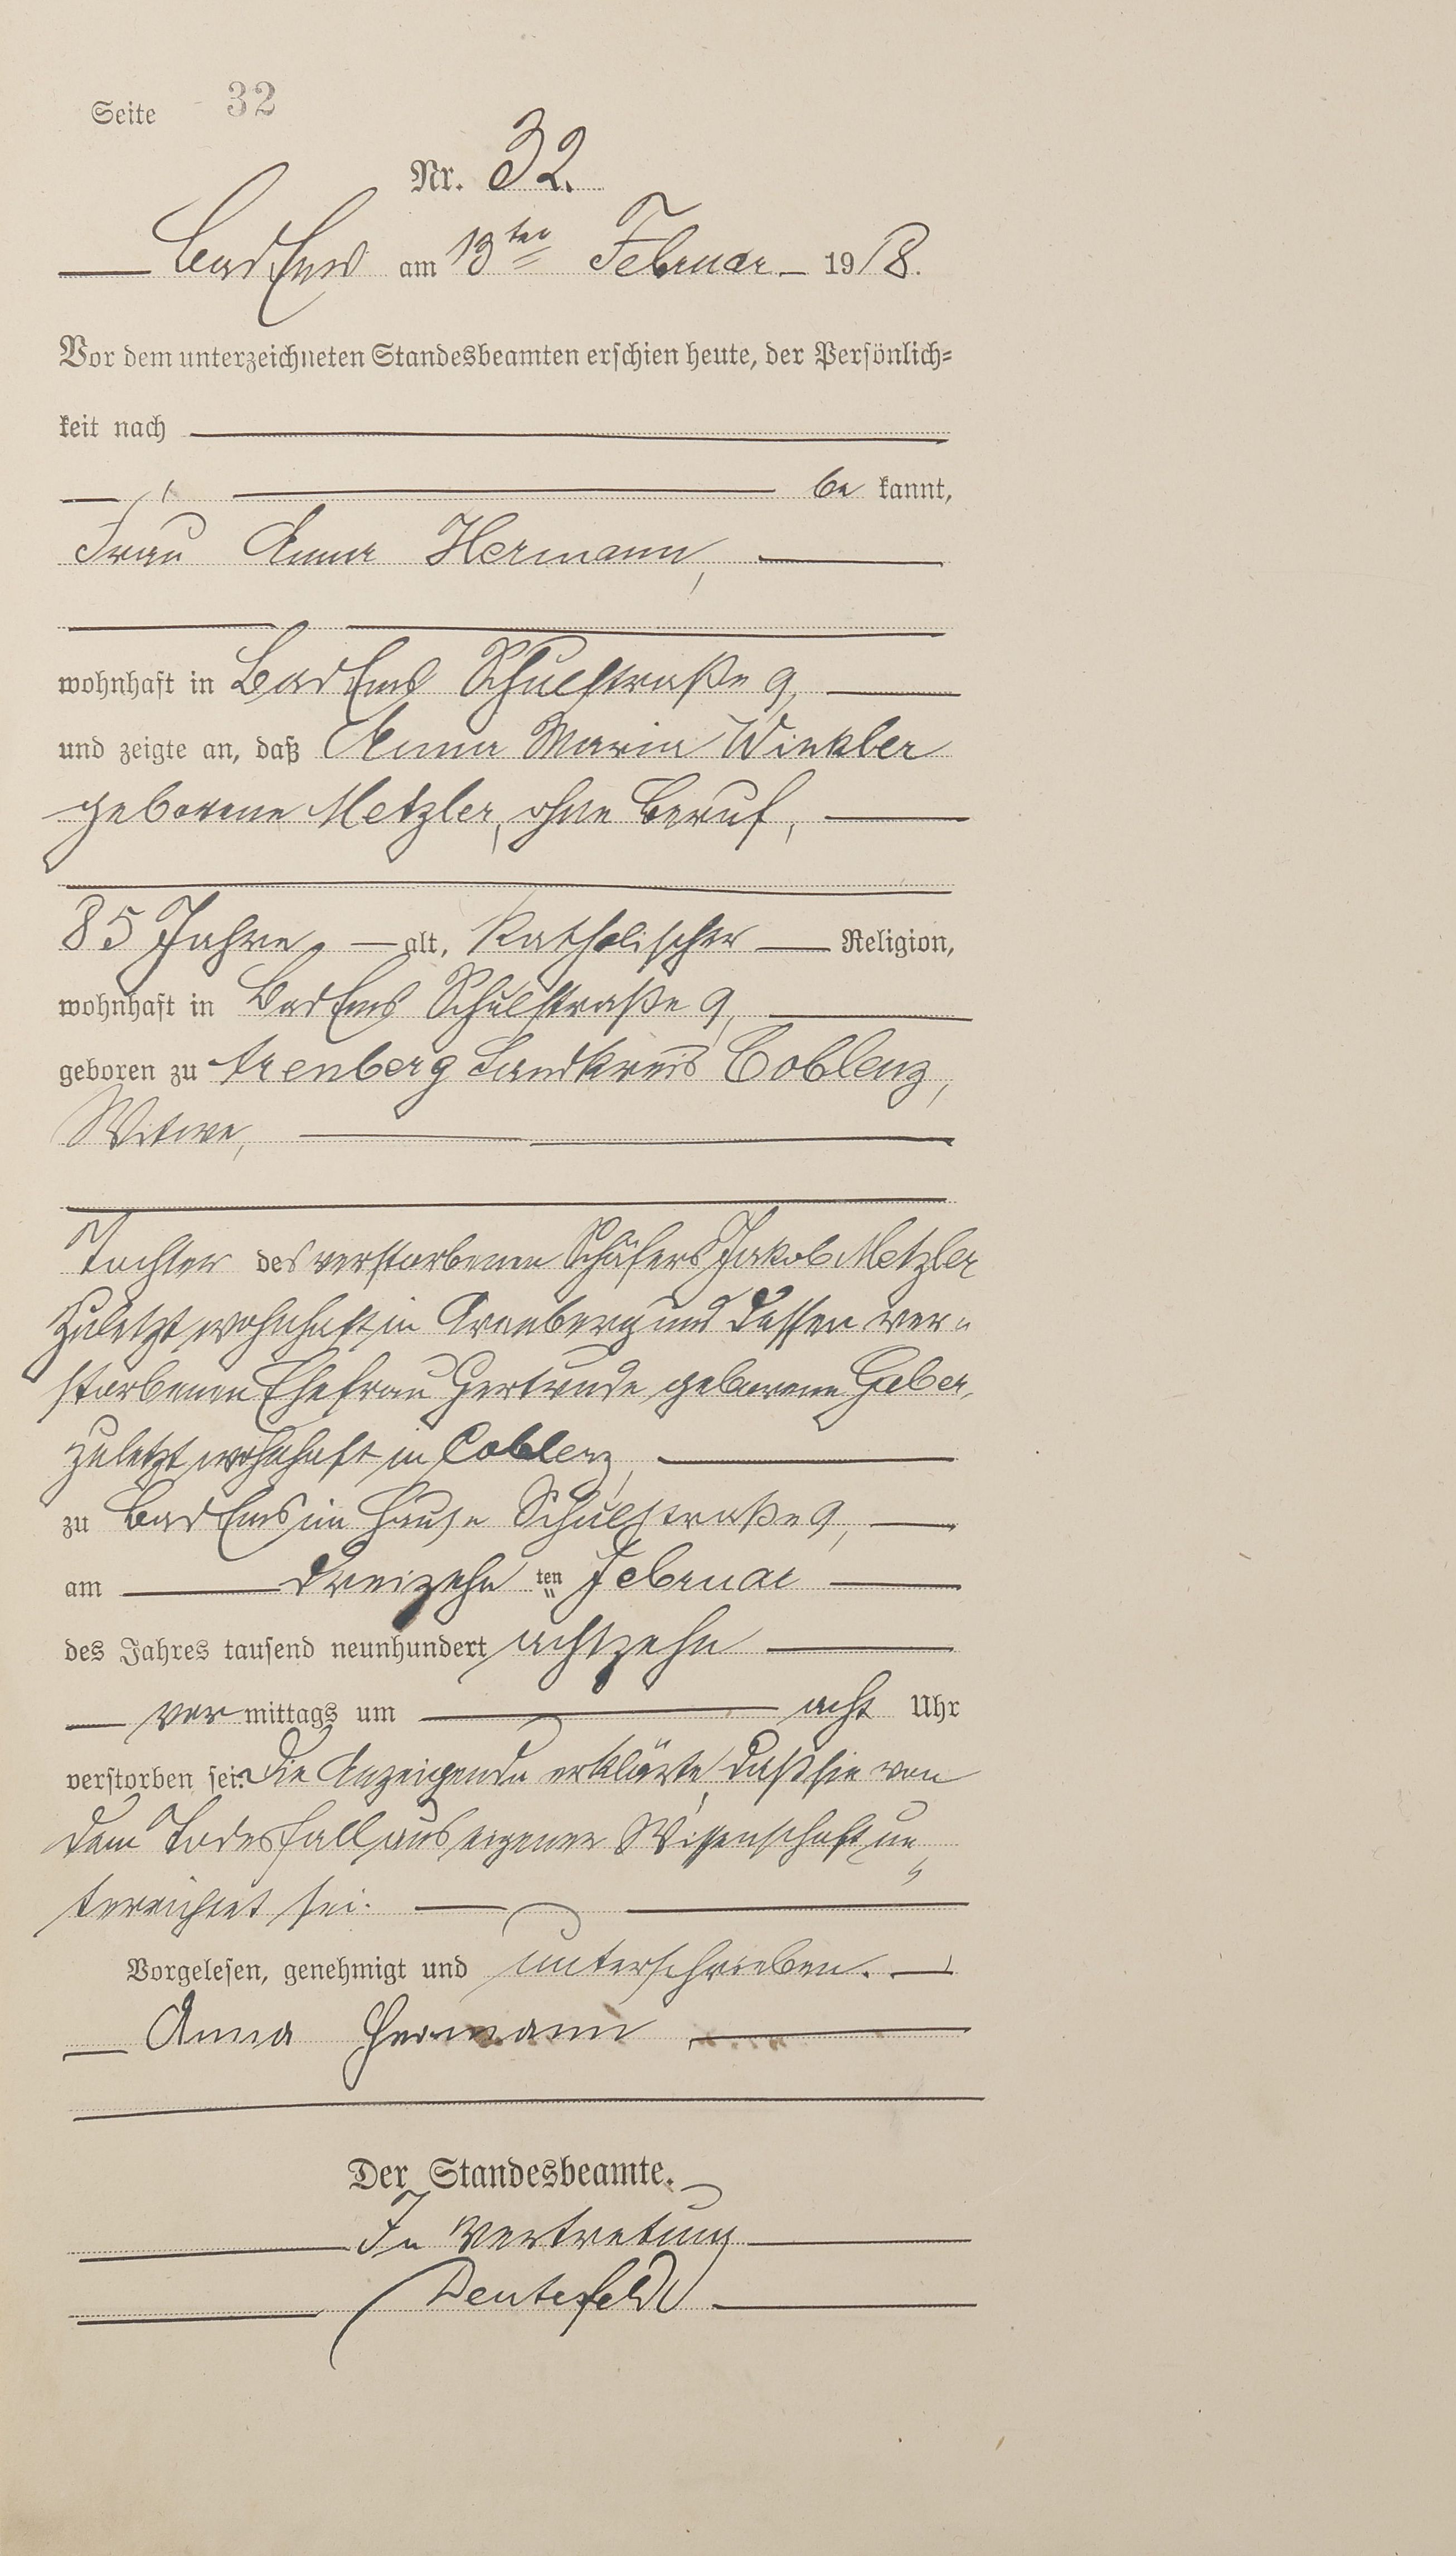 Seite 32
Nr. 32.
Bad Ems am 13ten Februar 1918.
Vor dem unterzeichneten Standesbeamten erschien heute, der Persönlich-
keit nach
be kannt,
Frau Anna Hermann,
wohnhaft in Bad Ems Schulstraße 9,
und zeigte an, daß Anna Maria Winkler
geborene Metzler, ohne Beruf,
85 Jahre, alt, katholischer Religion,
wohnhaft in Bad Ems Schulstraße 9,
geboren zu Arenberg Landkreis Coblenz,
Witwe,
Tochter des verstorbenen Schäfers Jakob Metzler
zuletzt wohnhaft in Arenberg und dessen ver-
storbenen Ehefrau Gertrude, geborene Gaber,
zuletzt wohnhaft in Coblenz,
zu Bad Ems im Hause Schulstraße 9,
am dreizehn ten Februar
des Jahres tausend neunhundert achtzehn
vor mittags um acht Uhr
verstorben sei. Die Anzeigende erklärte, daß sie von
dem Todesfall aus eigener Wissenschaft un
terrichtet sei.
Vorgelesen, genehmigt und unterschrieben.
Anna Hermann
Der Standesbeamte.
In Vertretung